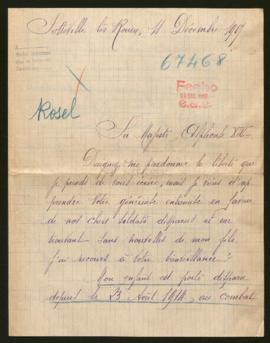 Sotteville les Rouen, 11 Décembre 191
67468
Rosel
Sa Majesté Alphonse XIII
Daignez me pardonner la liberté que
je prends de vous écrire, mais je viens d'ap
prendre votre généreuse entremise en faveur
de nos chers soldats disparus, et me
trouvant sans nouvelles de mon fils
j'ai recours à votre bienveillance.
Mon enfant est porté disparu
depuis le 23 Août 1914, au combat